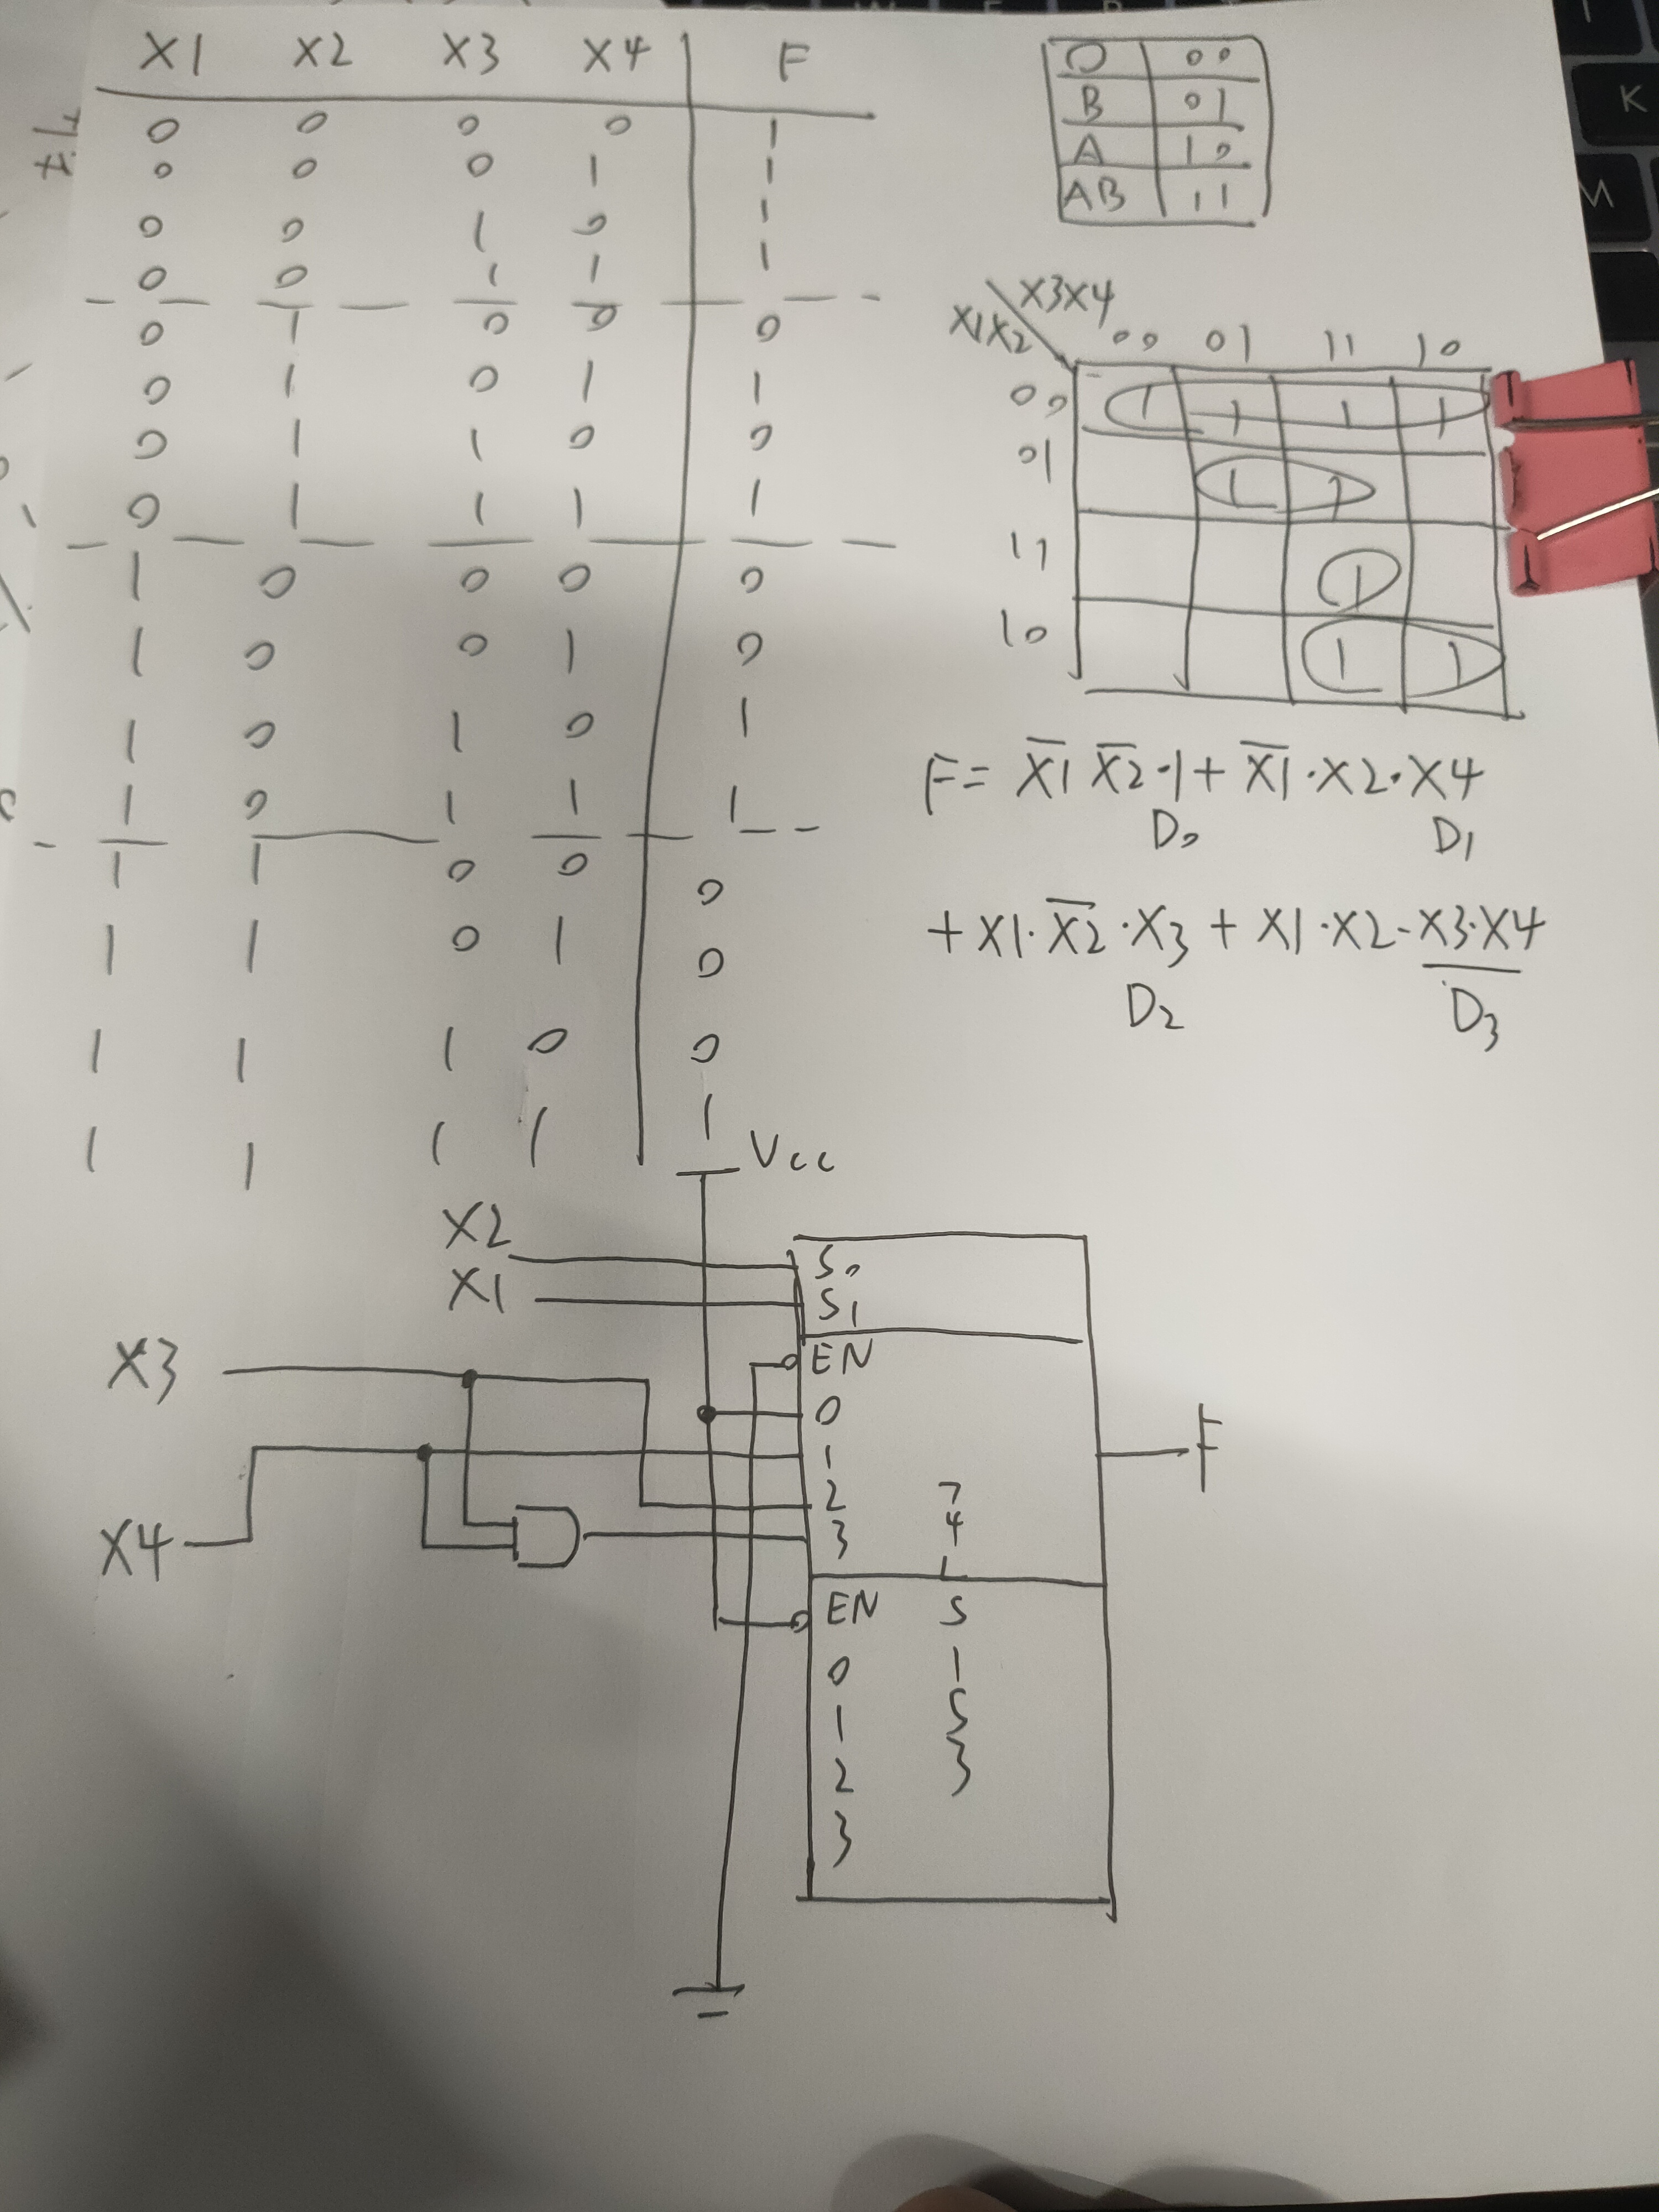 X1 X2 X3 X4 F
0 0 0 0 1
0 0 0 1 1
0 0 1 0 1
0 0 1 1 1
0 1 0 0 0
0 1 0 1 1
0 1 1 0 0
0 1 1 1 1
1 0 0 0 0
1 0 0 1 0
1 0 1 0 1
1 0 1 1 1
1 1 0 0 0
1 1 0 1 0
1 1 1 0 0
1 1 1 1 1
O 00
B 01
A 10
AB 11
X3X4
X1X2 00 01 11 10
00 1 1 1 1
01 1 1
11 1
10 1 1
F = X̅1̅ X̅2̅·1 + X̅1̅·X2·X4
D0 D1
+ X1·X̅2̅·X3 + X1·X2·X3·X4
D2 D3
Vcc
X2 S0
X1 S1
X3 EN
0
1
2
X4 3
F
EN
0
1
2
3
74LS153
K
M